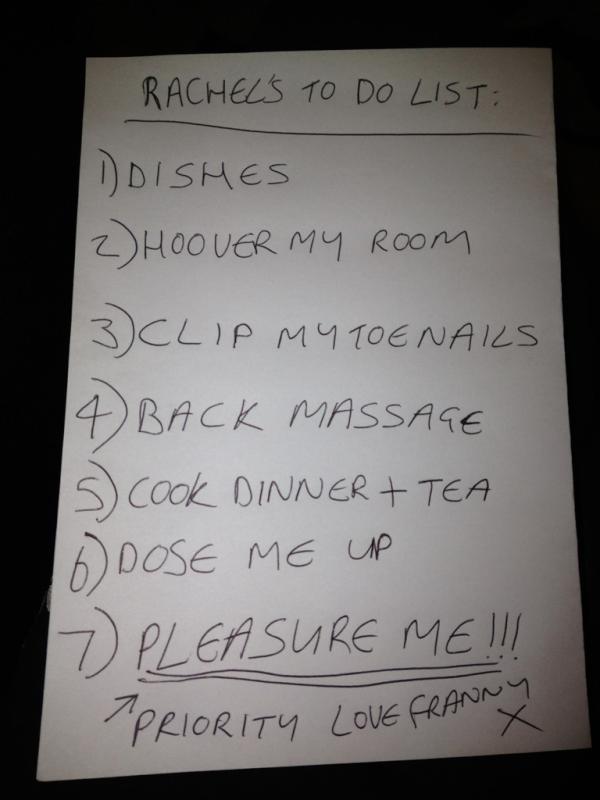 RACHEL'S TO DO LIST:
1) DISHES
2) HOOVER MY ROOM
3) CLIP MY TOENAILS
4) BACK MASSAGE
5) COOK DINNER + TEA
6) DOSE ME UP
7) PLEASURE ME!!!
↗PRIORITY LOVE FRANNY
X